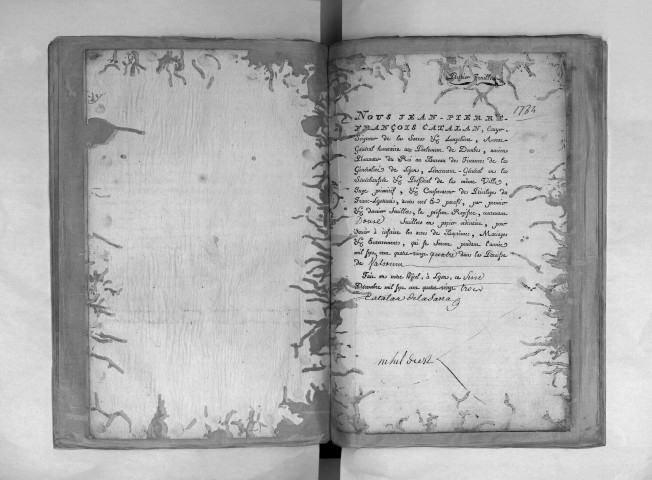 Premier Feuillet
1784
NOUS JEAN-PIERRE-
FRANÇOIS CATALAN, Ecuyer,
Seigneur de la Sarra & Langelière, Avocat-
Général honoraire au Parlement de Dombes, ancien
Procureur du Roi au Bureau des Finances de la
Généralité de Lyon, Lieutenant-Général en la
Sénéchaussée & Présidial de la même Ville,
Juge primitif, & Conservateur des Privileges du
Franc-Lyonnais, avons coté & parafé, par premier
& dernier feuillet, le présent Registre, contenant
Douze feuillets en papier ordinaire, pour
servir à inscrire les actes de Baptêmes, Mariages
& Enterrements, qui se feront pendant l'année
mil sept cent quatre-vingt quatre dans la Paroisse
de
Fait en notre Hôtel, à Lyon, ce Seize
Décembre mil sept cent quatre-vingt trois
Catalan de la Sarra